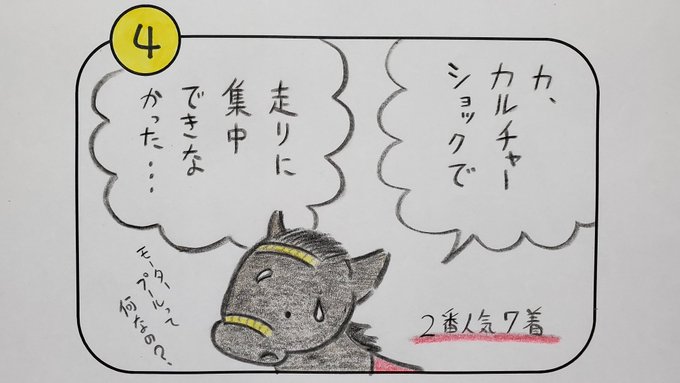 4
カ、
カルチャー
ショックで
走りに
集中
できな
かった…
モーター
プールって
何なの?、
2番人気7着